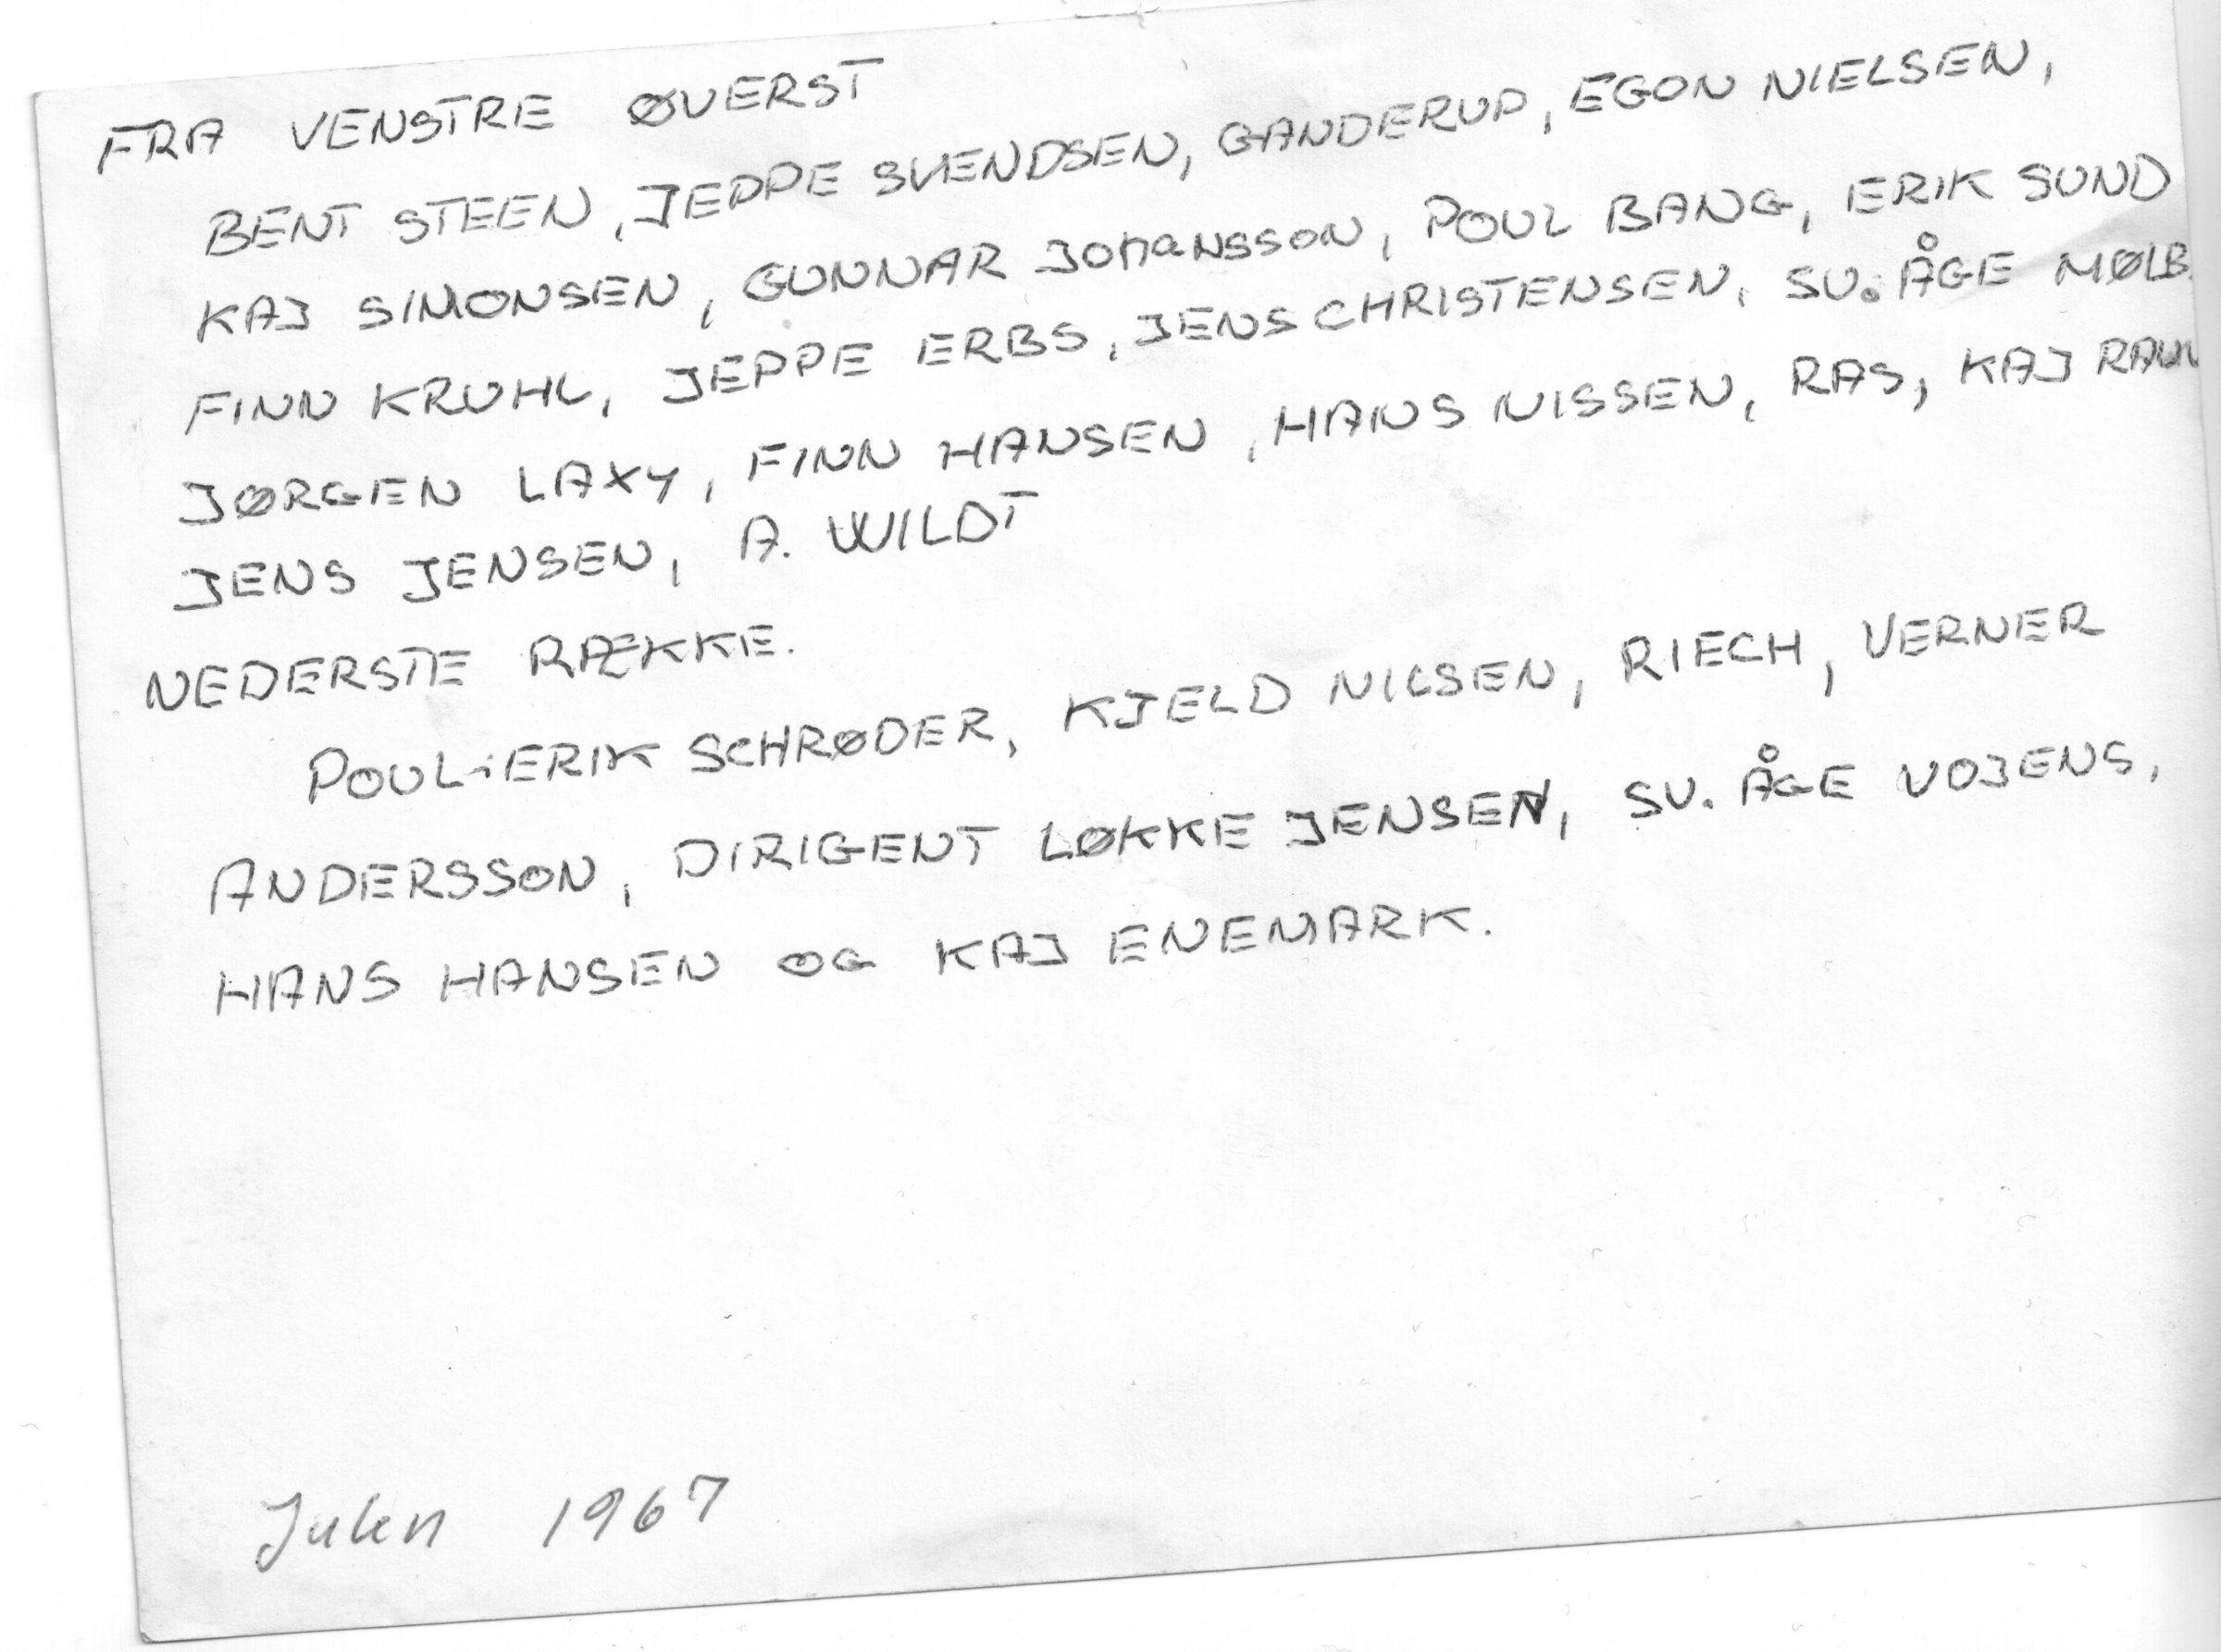 FRA VENSTRE ØVERST
BENT STEEN, JEPPE SVENDSEN, GANDERUP, EGON NIELSEN,
KAJ SIMONSEN, GUNNAR JOHANSSON, POUL BANG, ERIK SUND
FINN KRUHL, JEPPE ERBS, JENS CHRISTENSEN, SV. ÅGE MØLB
JØRGEN LAXY, FINN HANSEN, HANS NISSEN, RAS, KAJ
JENS JENSEN, A. WILDT
NEDERSTE RÆKKE.
POUL-ERIK SCHRØDER, KJELD NILSEN, RIECH, VERNER
ANDERSSON, DIRIGENT LØKKE JENSEN, SV. ÅGE VOJENS,
HANS HANSEN OG KAJ ENEMARK.
Julen 1967